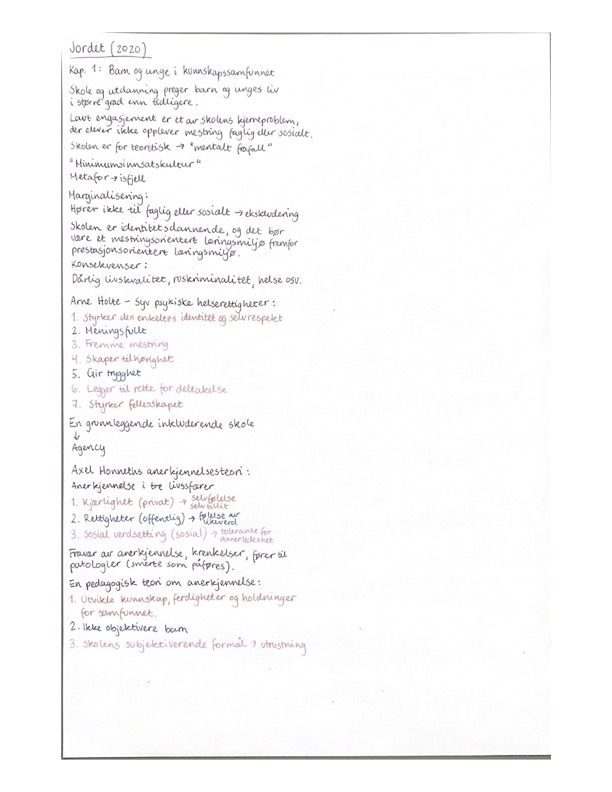 Jordet (2020)
Kap. 1: Barn og unge i kunnskapssamfunnet
Skole og utdanning preger barn og unges liv
i større grad enn tidligere.
Lavt engasjement er et av skolens kjerneproblem,
der elever ikke opplever mestring faglig eller sosialt.
Skolen er for teoretisk → "mentalt frafall"
"Minimumsinnsatskultur"
Metafor → isfjell
Marginalisering:
Hører ikke til faglig eller sosialt → ekskludering
Skolen er identitetsdannende, og det bør
være et mestringsorientert læringsmiljø fremfor
prestasjonsorientert læringsmiljø.
Konsekvenser:
Dårlig livskvalitet, ruskriminalitet, helse osv.
Arne Holte - Syv psykiske helserettigheter:
1. Styrker den enkeltes identitet og selvrespekt
2. Meningsfullt
3. Fremme mestring
4. Skaper tilhørighet
5. Gir trygghet
6. Legger til rette for deltakelse
7. Styrker fellesskapet
En grunnleggende inkluderende skole
↓
Agency
Axel Honneths anerkjennelsesteori:
Anerkjennelse i tre livssfærer
1. Kjærlighet (privat) → selvfølelse
selvtillit
2. Rettigheter (offentlig) → følelse av
likeverd
3. Sosial verdsetting (sosial) → toleranse for
annerledeshet
Fravær av anerkjennelse, krenkelser, fører til
patologier (smerte som påføres).
En pedagogisk teori om anerkjennelse:
1. Utvikle kunnskap, ferdigheter og holdninger
for samfunnet.
2. Ikke objektivere barn
3. Skolens subjektiverende formål → utrustning